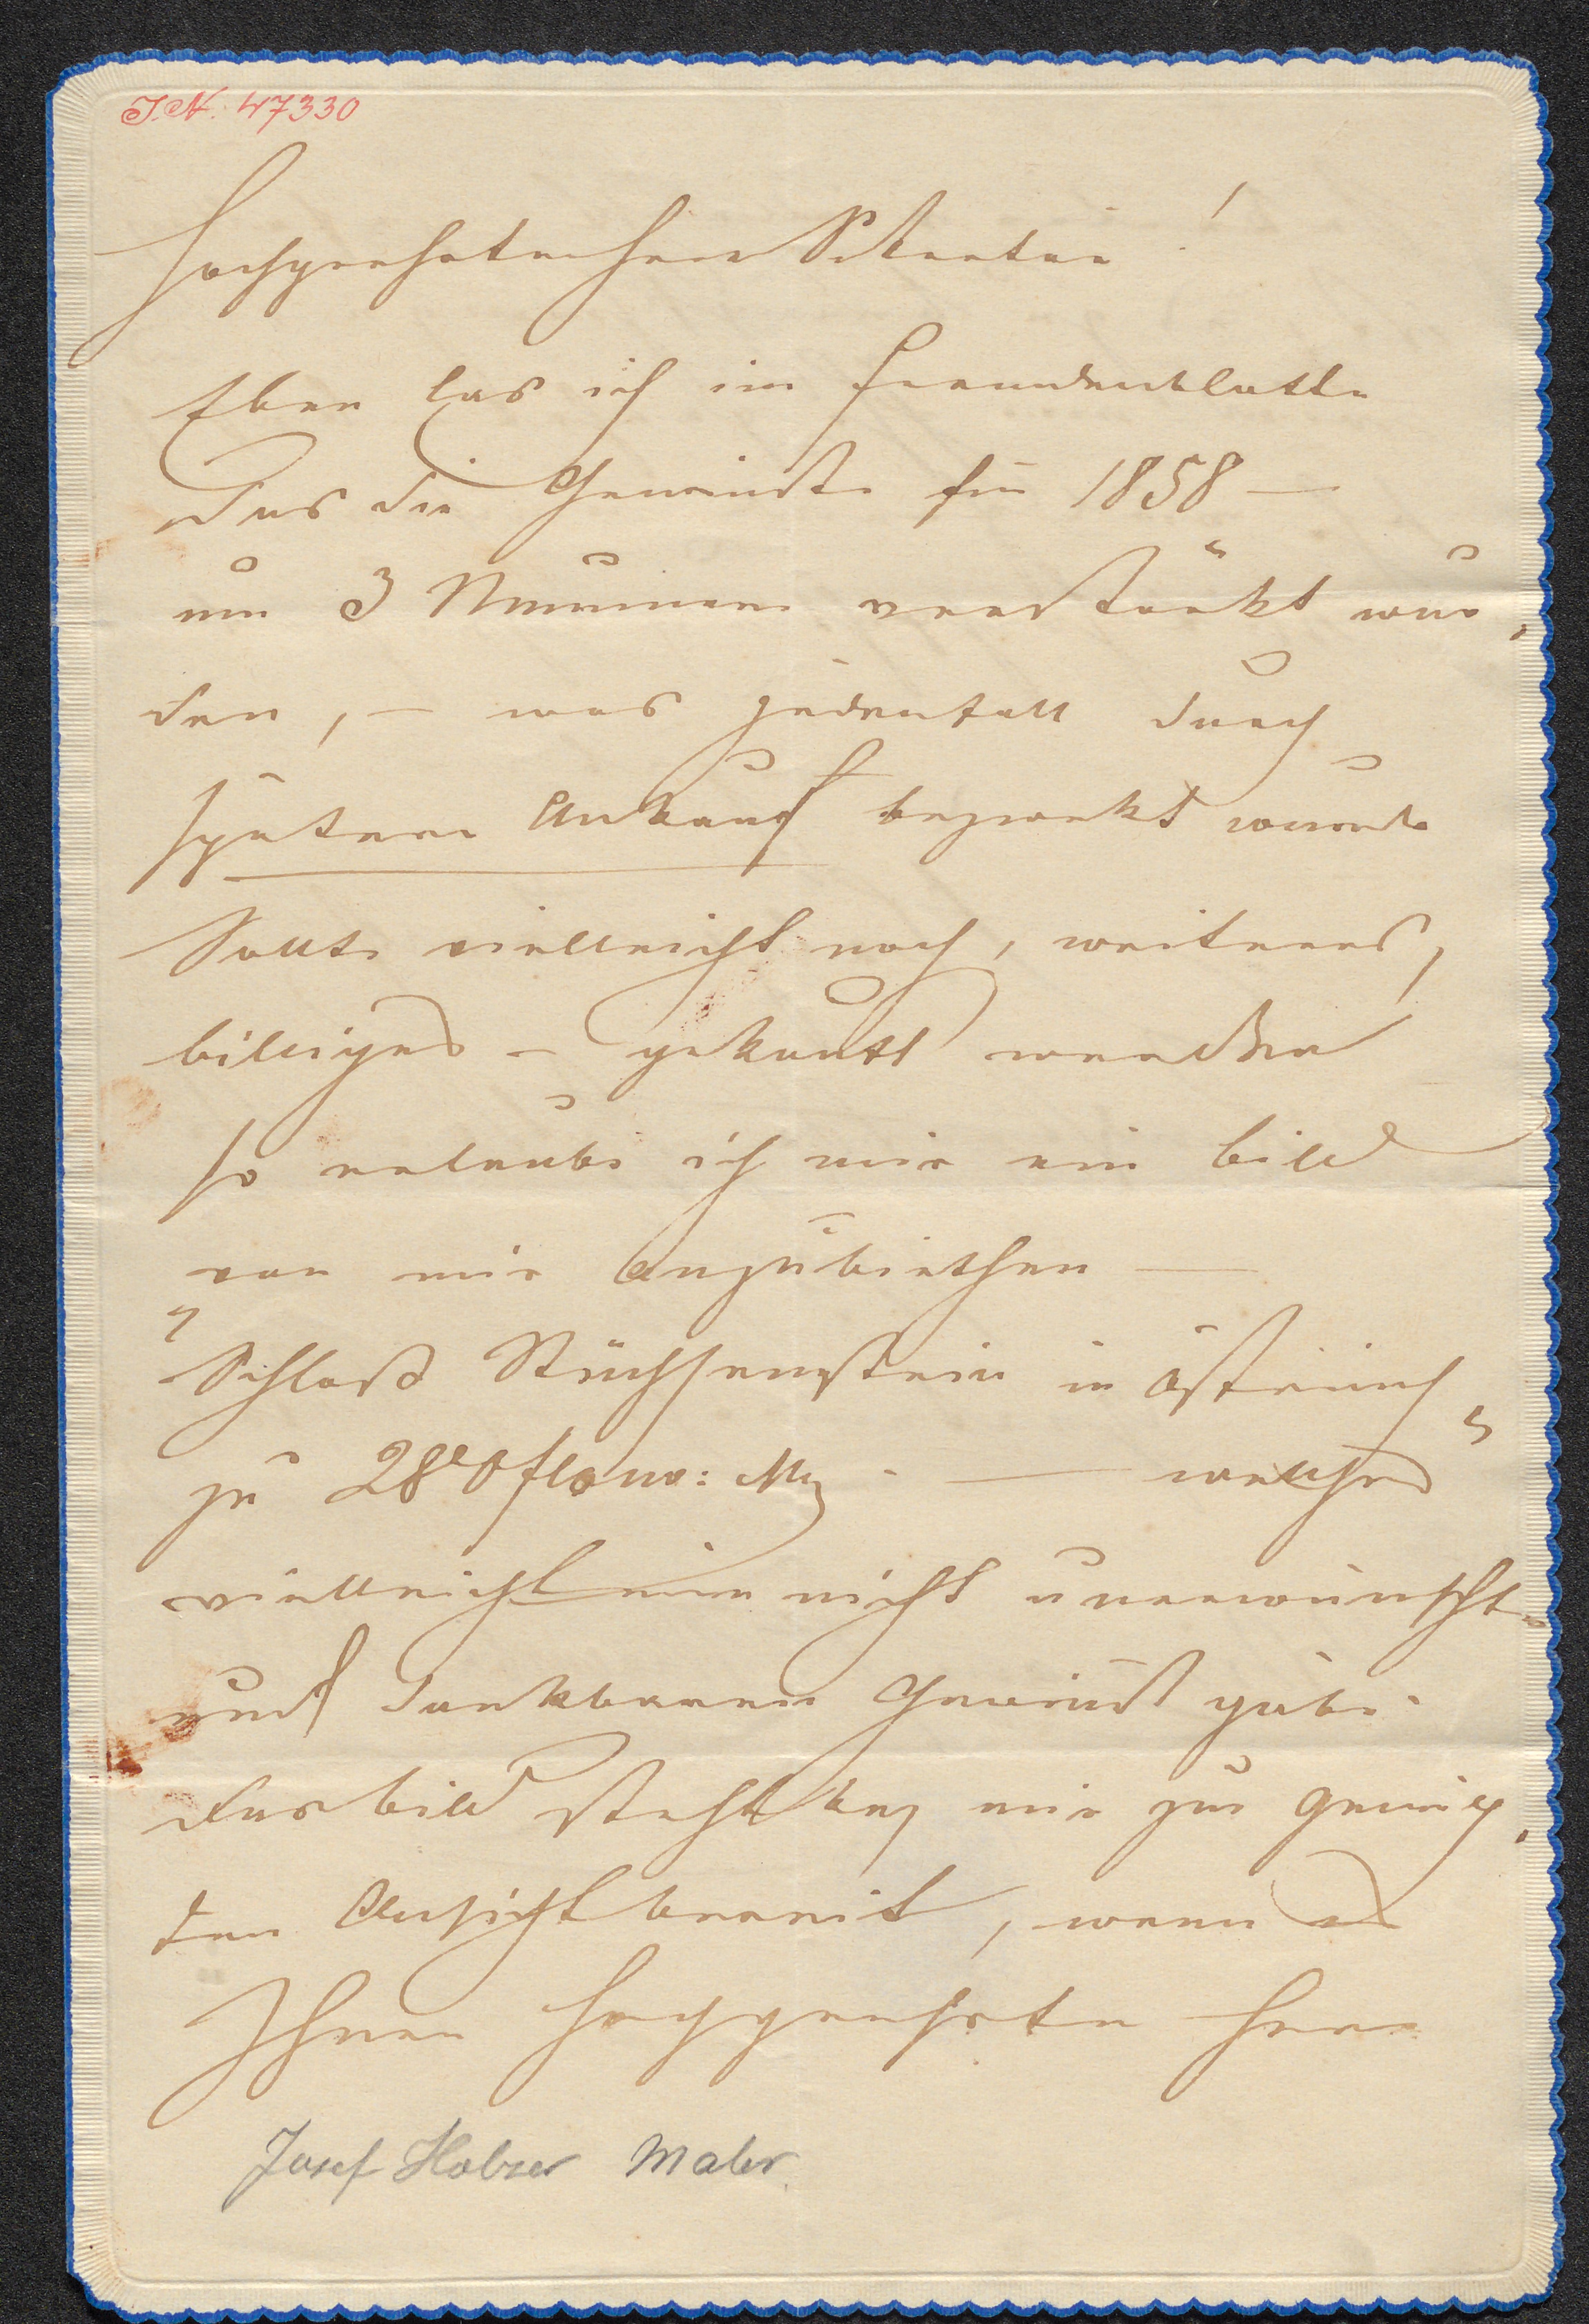 J.N. 47330
Hochgeehrter Herr Sekretär!
Eben las ich im Fremdenblatte
das die Gewinste für 1858 —
um 3 Nummern verstärkt wur,
den, — was jedenfall durch
spätern Ankauf bezwekt wurde
Sollte vielleicht noch, weiteres,
billiges — gekauft werden
so erlaube ich mir ein Bild
von mir anzubiethen —
"Schloß Stüchsenstein in Östreich"
zu 280 fl Conv: Mz. — welches
vielleicht einen nicht unerwünschte
und dankbaren Gewinst gäbe.
das Bild steht bey mir zur
den Ansicht bereit, wenn es
Ihnen hochgeehrter Herr
Josef Holzer Maler